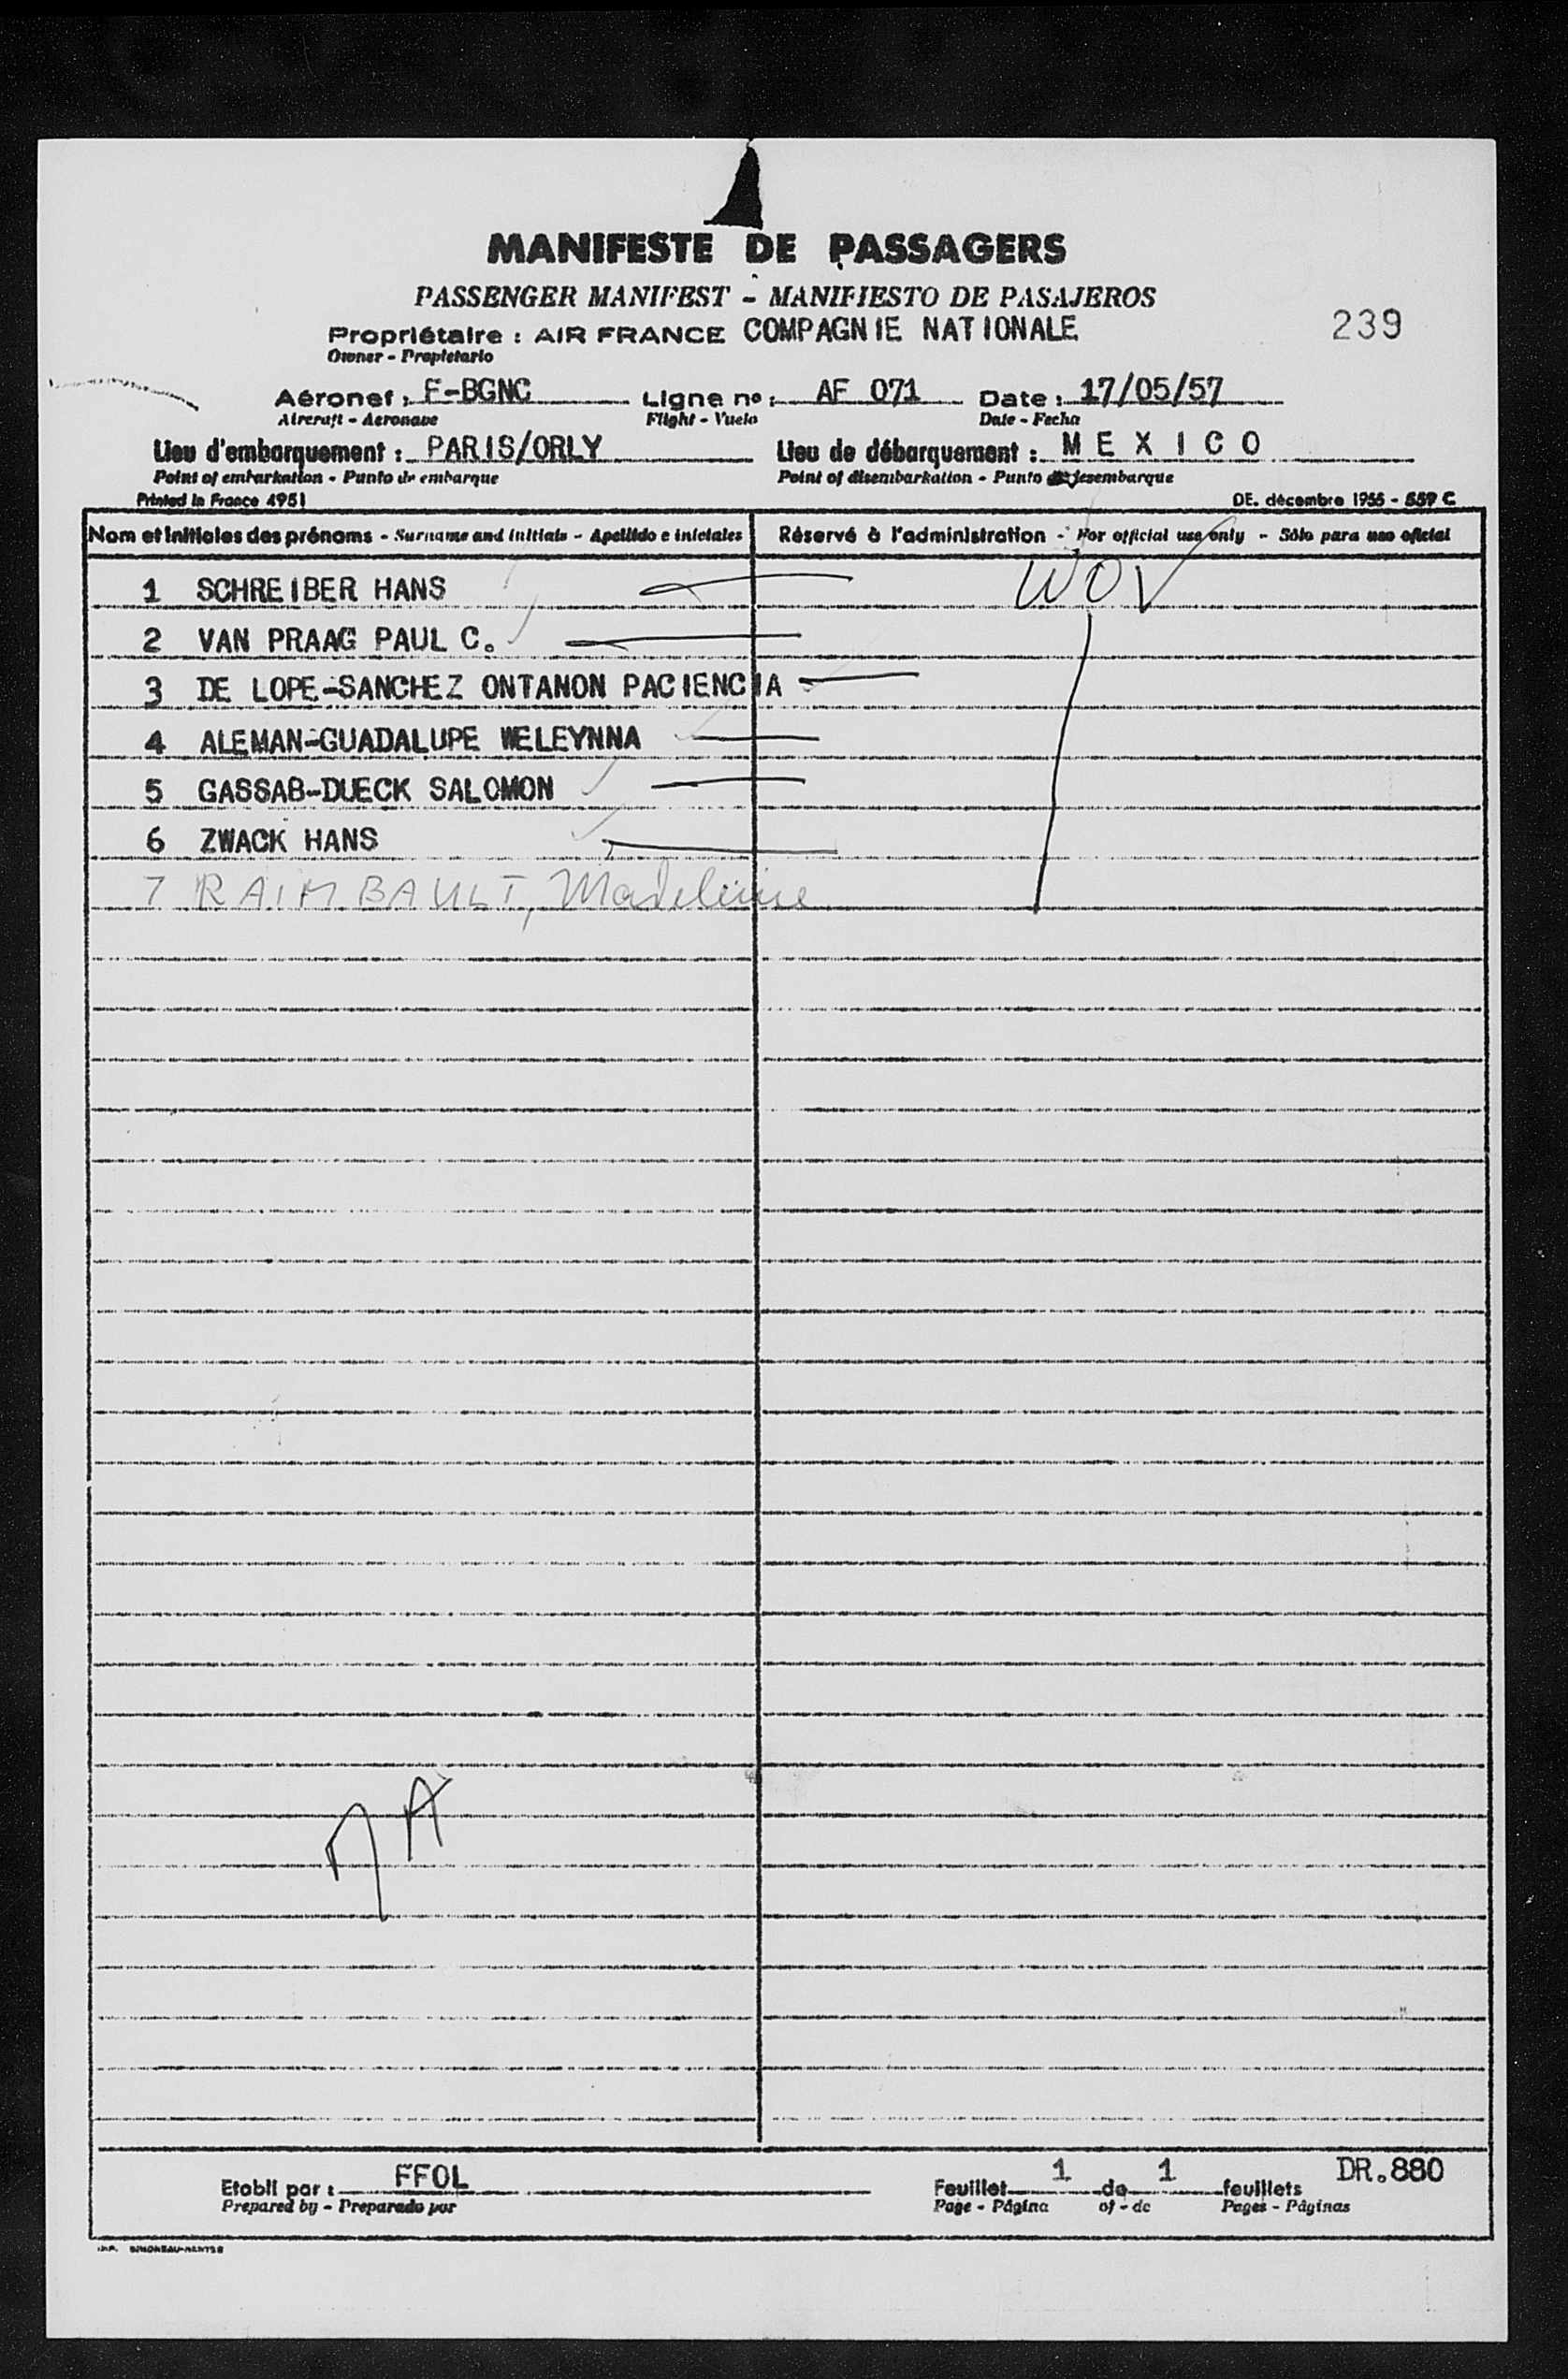 MANIFESTE DE PASSAGERS
PASSENGER MANIFEST - MANIFIESTO DE PASAJEROS
Propriétaire : AIR FRANCE COMPAGNIE NATIONALE
239
Owner - Propietario
Aéronef : F-BGNC Ligne nº : AF 071 Date : 17/05/57
Aircraft - Aeronave Flight - Vuelo Date - Fecha
Lieu d'embarquement : PARIS/ORLY Lieu de débarquement : MEXICO
Point of embarkation - Punto de embarque Point of disembarkation - Punto de desembarque
Printed in France 4951 DE. décembre 1955 - 559 C
Nom et initiales des prénoms - Surname and initials - Apellido e iniciales Réservé à l'administration - For official use only - Sólo para uso oficial
1 SCHREIBER HANS WOV
2 VAN PRAAG PAUL C.
3 DE LOPE-SANCHEZ ONTANON PACIENCIA
4 ALEMAN-GUADALUPE WELEYNNA
5 GASSAB-DUECK SALOMON
6 ZWACK HANS
7 RAIMBAULT, Madeleine
Etabli par : FFOL Feuillet 1 de 1 feuillets DR.880
Prepared by - Preparado por Page - Página of - de Pages - Páginas
IMP. SIMONEAU-NANTES